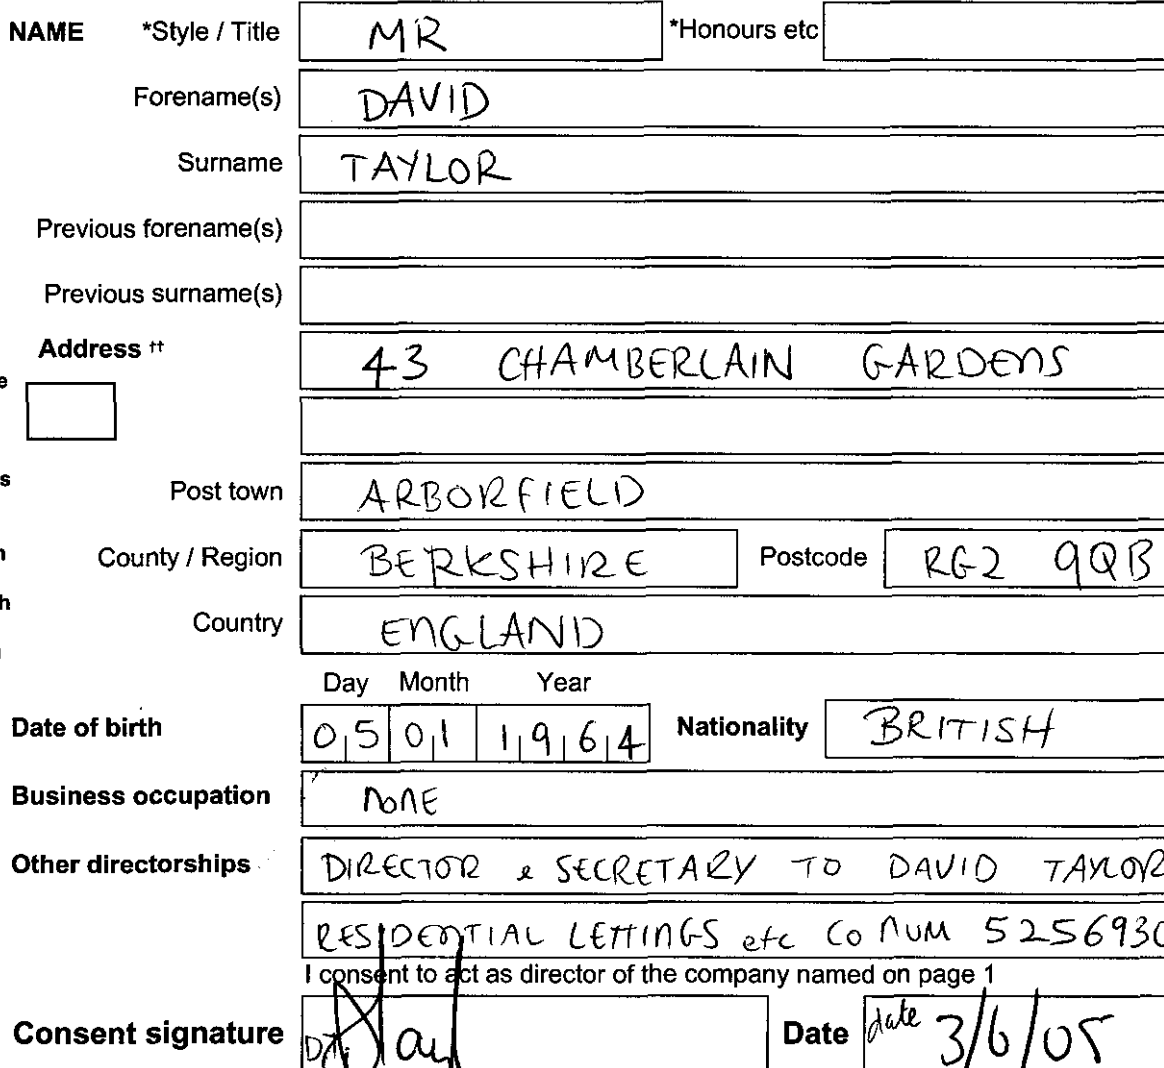 NAME *Style / Title MR *Honours etc
Forename(s) DAVID
Surname TAYLOR
Previous forename(s)
Previous surname(s)
Address ††
43 CHAMBERLAIN GARDENS
Post town ARBORFIELD
County / Region BERKSHIRE Postcode RG2 9QB
Country ENGLAND
Day Month Year
Date of birth 05 01 1964 Nationality BRITISH
Business occupation NONE
Other directorships DIRECTOR & SECRETARY TO DAVID TAYLOR
RESIDENTIAL LETTINGS etc CO NUM 5256930
I consent to act as director of the company named on page 1
Consent signature Date date 3/6/05